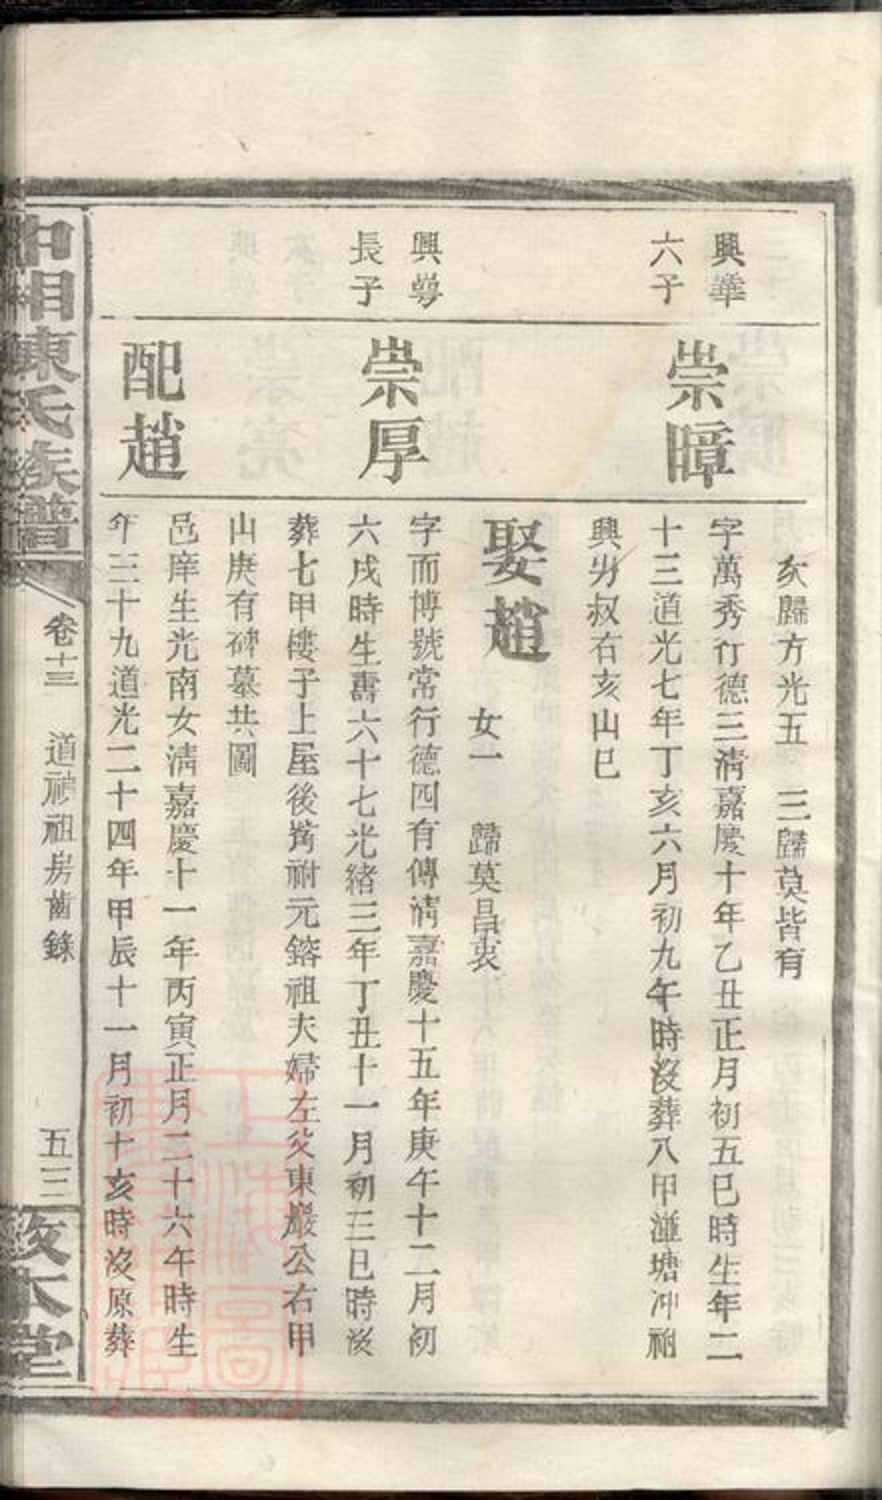 亥歸方光五　三歸莫皆有
興華
六子
崇暲
字萬秀行德三清嘉慶十年乙丑正月初五巳時生年二
十三道光七年丁亥六月初九午時沒葬八甲湴塘冲祔
興岃叔右亥山巳
娶趙
女一　歸莫昌衷
興㝵
長子
崇厚
字而博號常行德四有傳清嘉慶十五年庚午十二月初
六戌時生壽六十七光緒三年丁丑十一月初三巳時沒
葬七甲樓子上屋後嘴祔元鎔祖夫婦左㳊東巖公右甲
山庚有碑墓共圖
配趙
邑庠生光南女清嘉慶十一年丙寅正月二十六午時生
年三十九道光二十四年甲辰十一月初十亥時沒原葬
中湘陳氏族譜
卷十三
道神祖房齒錄
五三
敦本堂
上海圖書館藏